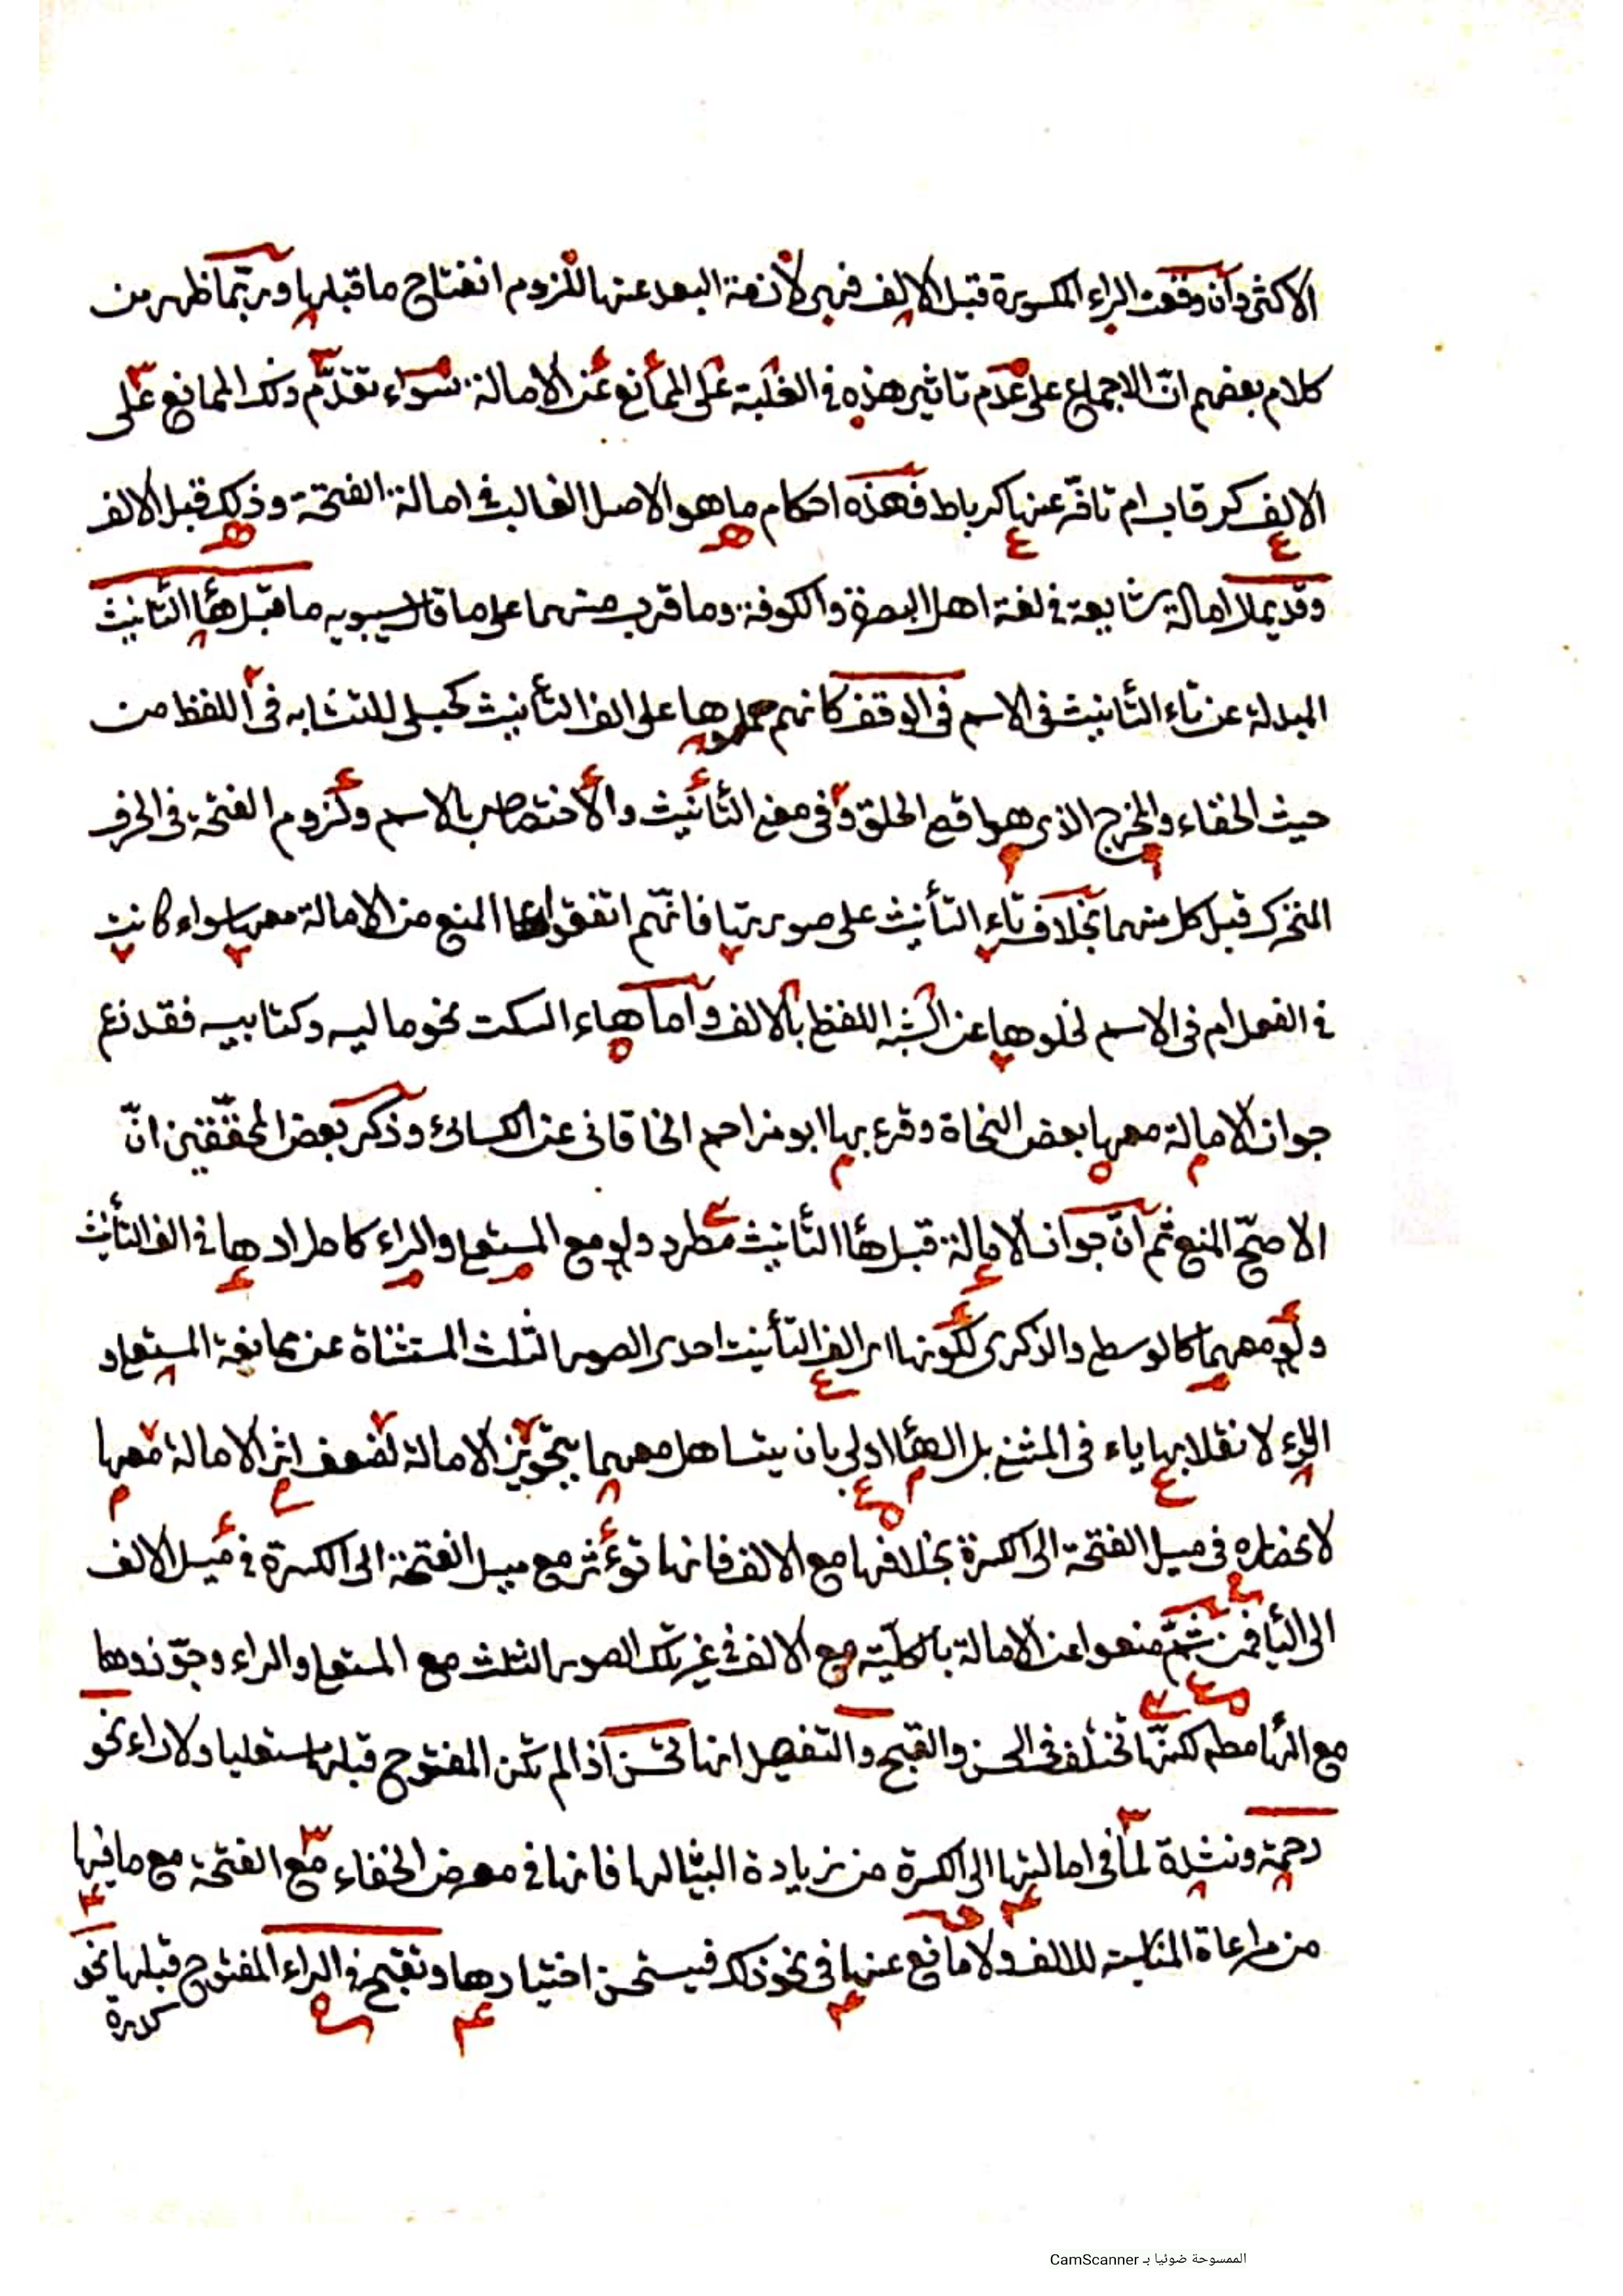 الاكثر وان وقعت الراء المكسورة قبل الالف فهي لازمة البعد عنها للزوم انفتاح ما قبلها وربّما ظهر من
كلام بعضهم انّ الاجماع على عدم تاثير هذه في الغلبة على المانع عن الامالة سواء تقدّم ذلك المانع على
الالف كرقاب ام تاخّر عنها كرباط فهذه احكام ما هو الاصل الغالب في امالة الفتحة وذلك قبل الالف
وقد يمال امالة شايعة في لغة اهل البصرة والكوفة وما قرب منهما على ما قال سيبويه ما قبل هاء التانيث
المبدلة عن تاء التأنيث في الاسم في الوقف كانهم حملوها على الف التأنيث كحبلى للتشابه في اللفظ من
حيث الخفاء والمخرج الذي هو اقصى الحلق وفي معنى التأنيث والاختصاص بالاسم ولزوم الفتحة في الحرف
المتحرك قبل كل منهما بخلاف تاء التأنيث على صورتها فانّهم اتفقوا على المنع من الامالة معها سواء كانت
في الفعل ام في الاسم لخلوها عن الشبه اللفظي بالالف واما هاء السكت نحو ماليه وكتابيه فقد زعم
جواز الامالة معها بعض النحاة وقرء بها ابو مزاحم الخاقاني عن الكسائي وذكر بعض المحقّقين انّ
الاصحّ المنع ثم انّ جواز الامالة قبل هاء التأنيث مطرد ولو مع المستعلي والراء كاطرادها في الف التأنيث
ولو معهما كالوسطى والذكرى لكونها اى الف التأنيث احدى الصور الثلث المستثناة عن ممانعة المستعلي و
الراء لانقلابها ياء في المثنى بل الهاء اولى بان يتساهل معهما بتجويز الامالة لضعف اثر الامالة معها
لانحصاره في ميل الفتحة الى الكسرة بخلافها مع الالف فانها تؤثر مع ميل الفتحة الى الكسرة في ميل الالف
الى الياء فمن ثمّ منعوا عن الامالة بالكليّة مع الالف في غير تلك الصور الثلث مع المستعلي والراء وجوّزوها
مع الهاء مطلقا لكنّها تختلف في الحسن والقبح والتفصيل انها تحسن اذا لم تكن المفتوح قبلها مستعليا ولا راء نحو
رحمة ونشدة لما في امالتها الى الكسرة من زيادة البيان لها فانها في معرض الخفاء مع الفتحة مع ما فيها
من مراعاة المناسبة للالف ولا مانع عنها في نحو ذلك فيستحسن اختيارها وتقبح في الراء المفتوح قبلها نحو
كدرة
الممسوحة ضوئيا بـ CamScanner